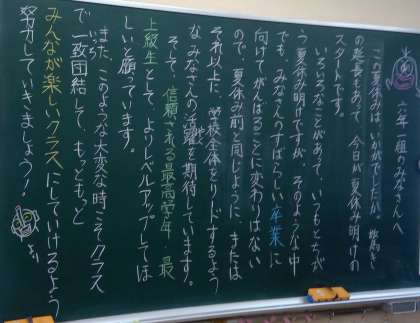 六年一組のみなさんへ
この夏休みは、いかがでしたか。
の延長もあって、今日が夏休み明けの
スタートです。
いろいろなことがあって、いつもとちが
う夏休み明けですが、そのような中
でも、みなさんのすばらしい卒業に
向けてがんばることに変わりはない
ので、夏休み前と同じように、または
それ以上に、学校全体をリードするよう
なみなさんの活躍を期待しています。
そして、信頼される最高学年・最
上級生として、よりレベルアップしてほ
しいと願っています。
また、このような大変な時こそクラス
で一致団結して、もっともっと
みんなが楽しいクラスにしていけるよう
努力していきましょう!!
より